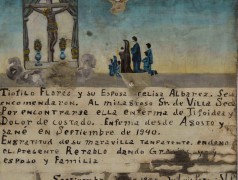 Tiofilo Flores y su Esposa Felisa Albarez, Se
encomendaron, Al milagroso Sr. de Villa Seca
Por encontrarse ella enferma de Tifoidea y
Dolor de costado. Enferma desde Agosto y
sanó en Septiembre de 1940.
En gratitud de su maravilla tan patente, endono
el presente Retablo dando Gracias
esposo y Familia
Septiembre